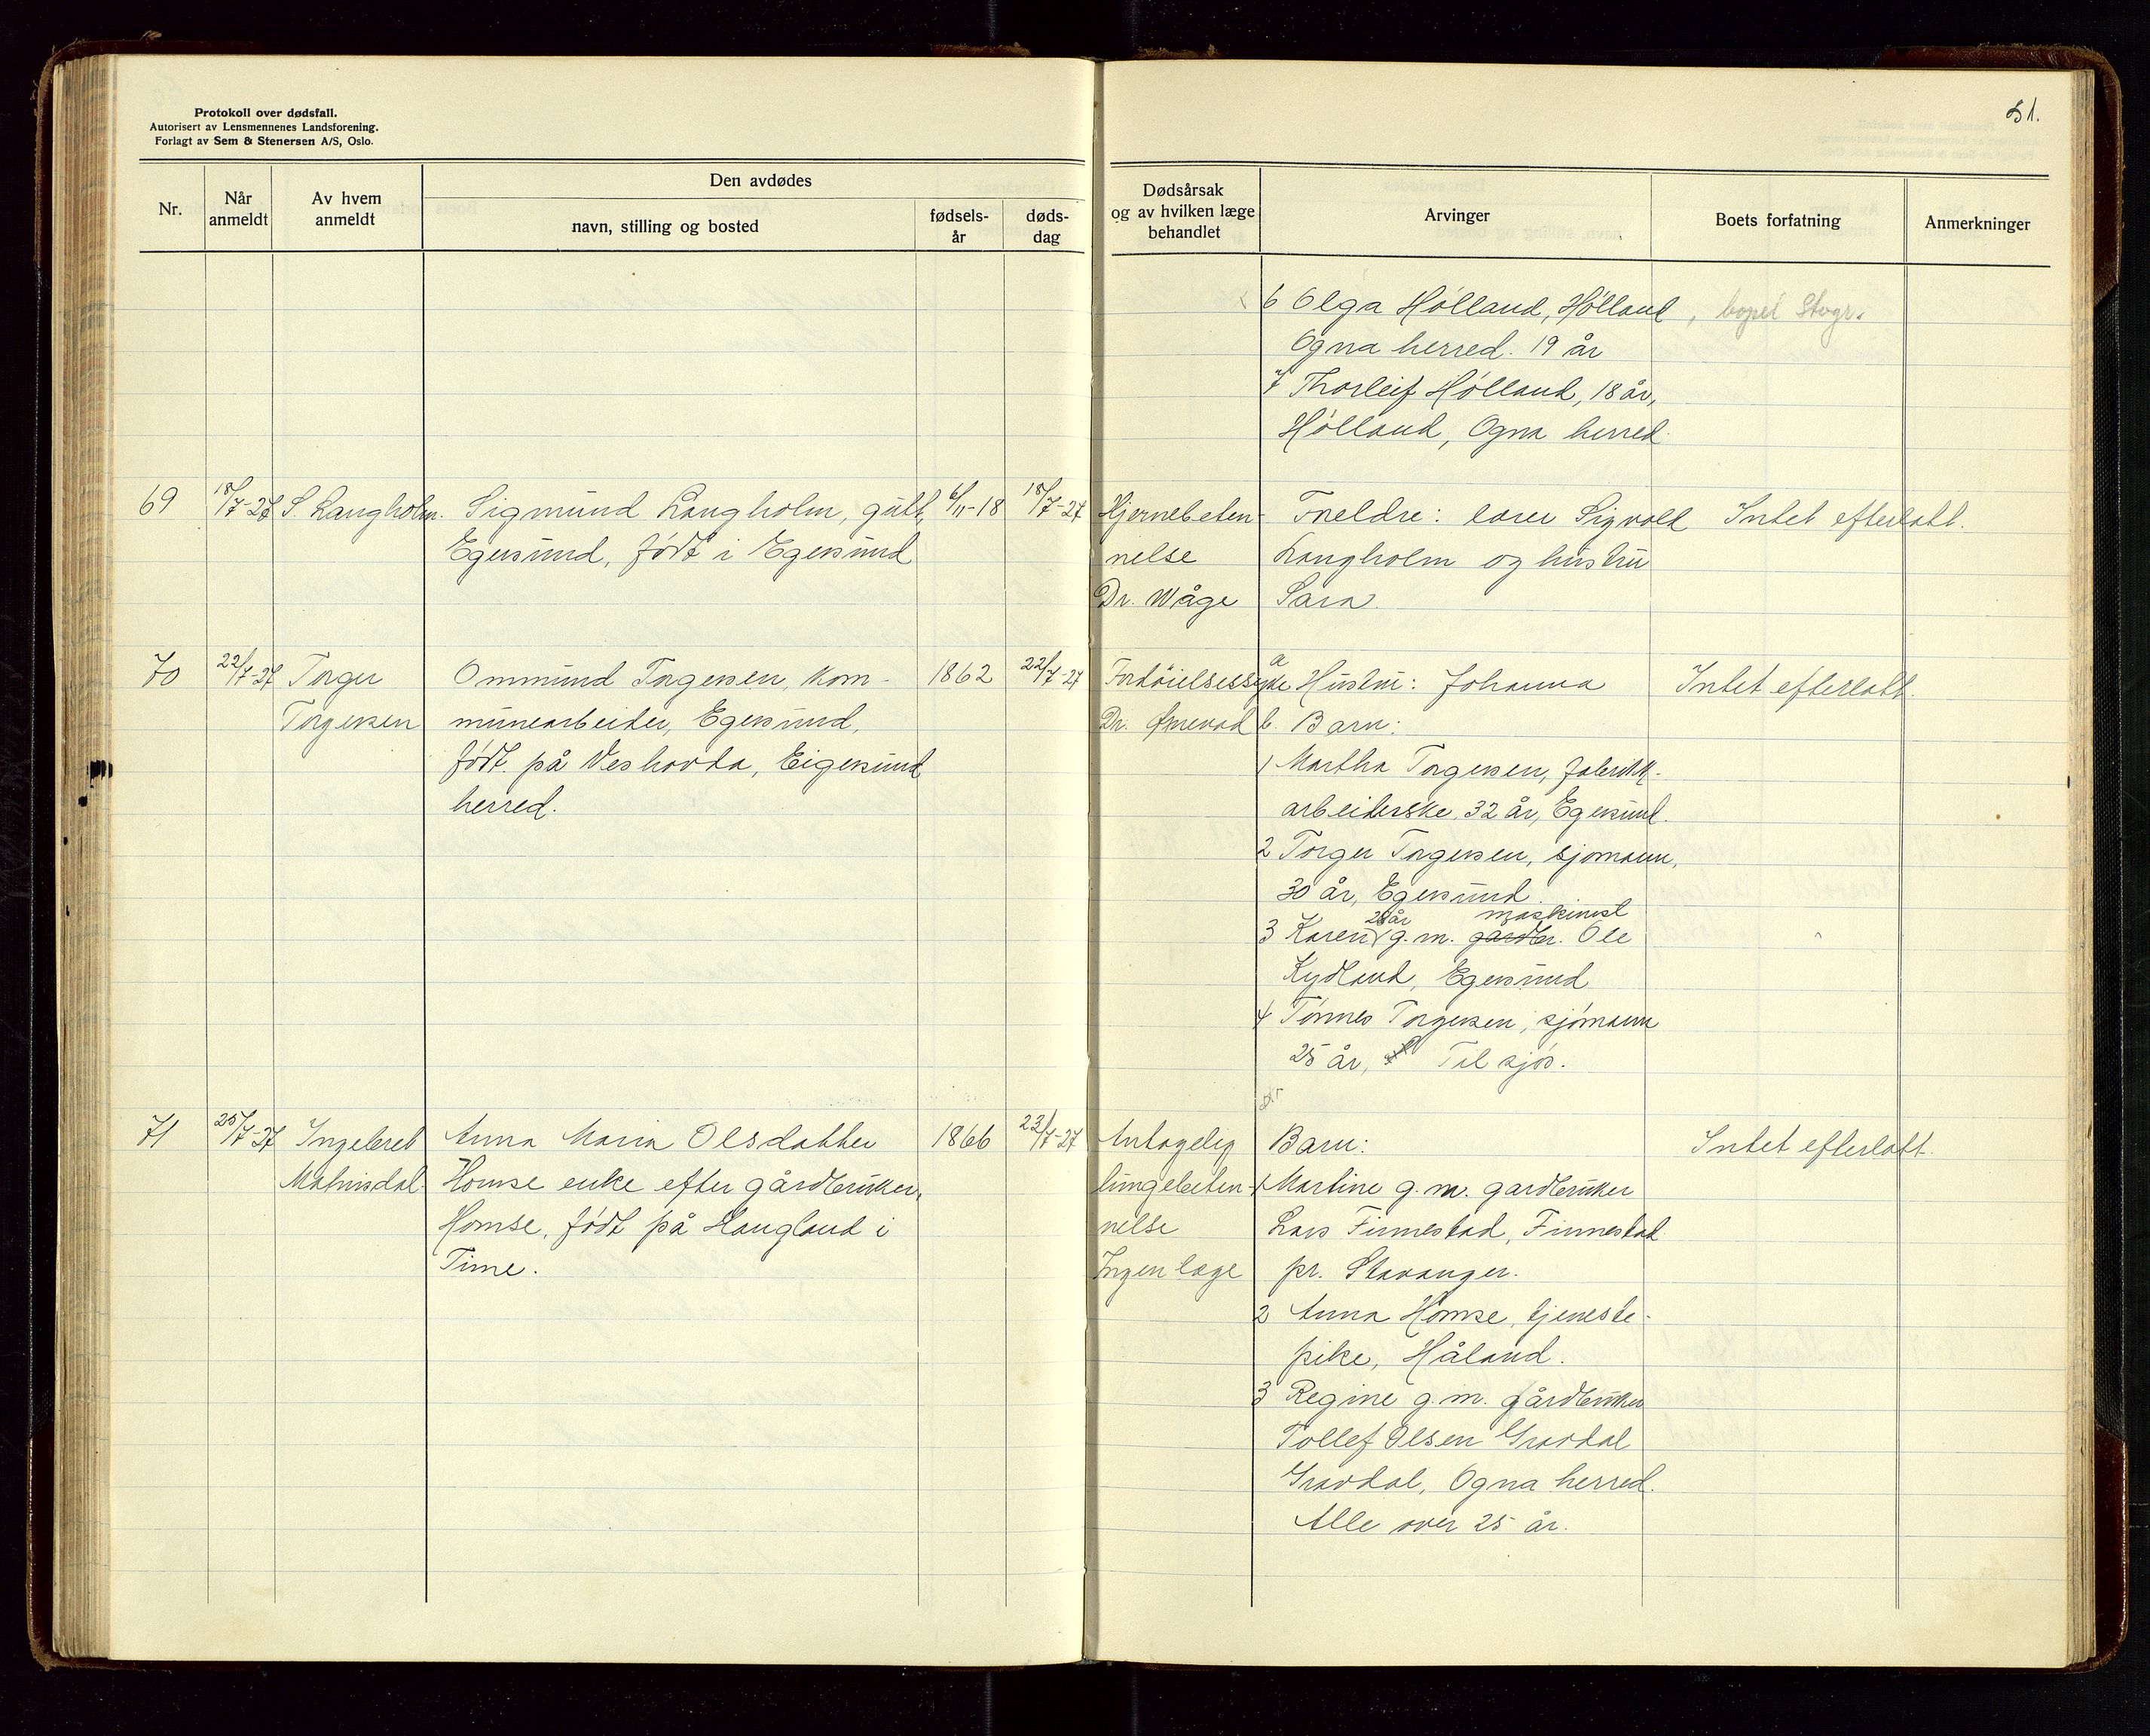 Protokoll over dødsfall.
Autorisert av Lensmennenes Landsforening.
Forlagt av Sem & Stenersen A/S, Oslo.
51.
Nr.
Når anmeldt
Av hvem anmeldt
Den avdødes
navn, stilling og bosted
fødsels-år
døds-dag
Dødsårsak og av hvilken læge behandlet
Arvinger
Boets forfatning
Anmerkninger
6 Olga Hølland, Hølland, bopel Stvgr.
Ogna herred. 19 år
7 Thorleif Hølland, 18 år,
Hølland, Ogna herred.
69
18/7-27
S. Langholm.
Sigmund Langholm, gutt,
Egersund, født i Egersund
6/11-18
18/7-27
Hjernebeten-
nelse
Dr. Wåge
Foreldre: lærer Sigvald
Langholm og hustru
Sara.
Intet efterlatt.
70
22/7-27
Torger
Torgersen
Ommund Torgersen, kom-
munearbeider, Egersund,
født på Veshovda, Eigersund
herred.
1862
22/7-27
Forhøielsessyke
Dr. Ørnevad
a Hustru: Johanna
b. Barn:
1 Martha Torgersen, fabrikk-
arbeiderske, 32 år, Egersund.
2 Torger Torgersen, sjømann,
30 år, Egersund.
28 år maskinist
3 Karen g.m. gardbr. Ole
Kydland, Egersund
4 Tønnes Torgersen, sjømann
25 år, Til sjøs.
Intet efterlatt.
71
25/7-27
Ingebret
Matningsdal
Anna Maria Olsdatter
Homse enke efter gårdbruker,
Homse, født på Haugland i
Time.
1866
23/7-27
Antagelig
lungebeten-
nelse
Ingen læge
Barn:
1 Martine g.m. gardbruker
Lars Finnestad, Finnestad
pr. Stavanger.
2 Anna Homse, tjeneste-
pike, Håland.
3 Regine g.m. gårdbruker
Tollef Olsen Gravdal
Gravdal, Ogna herred.
Alle over 25 år.
Intet efterlatt.